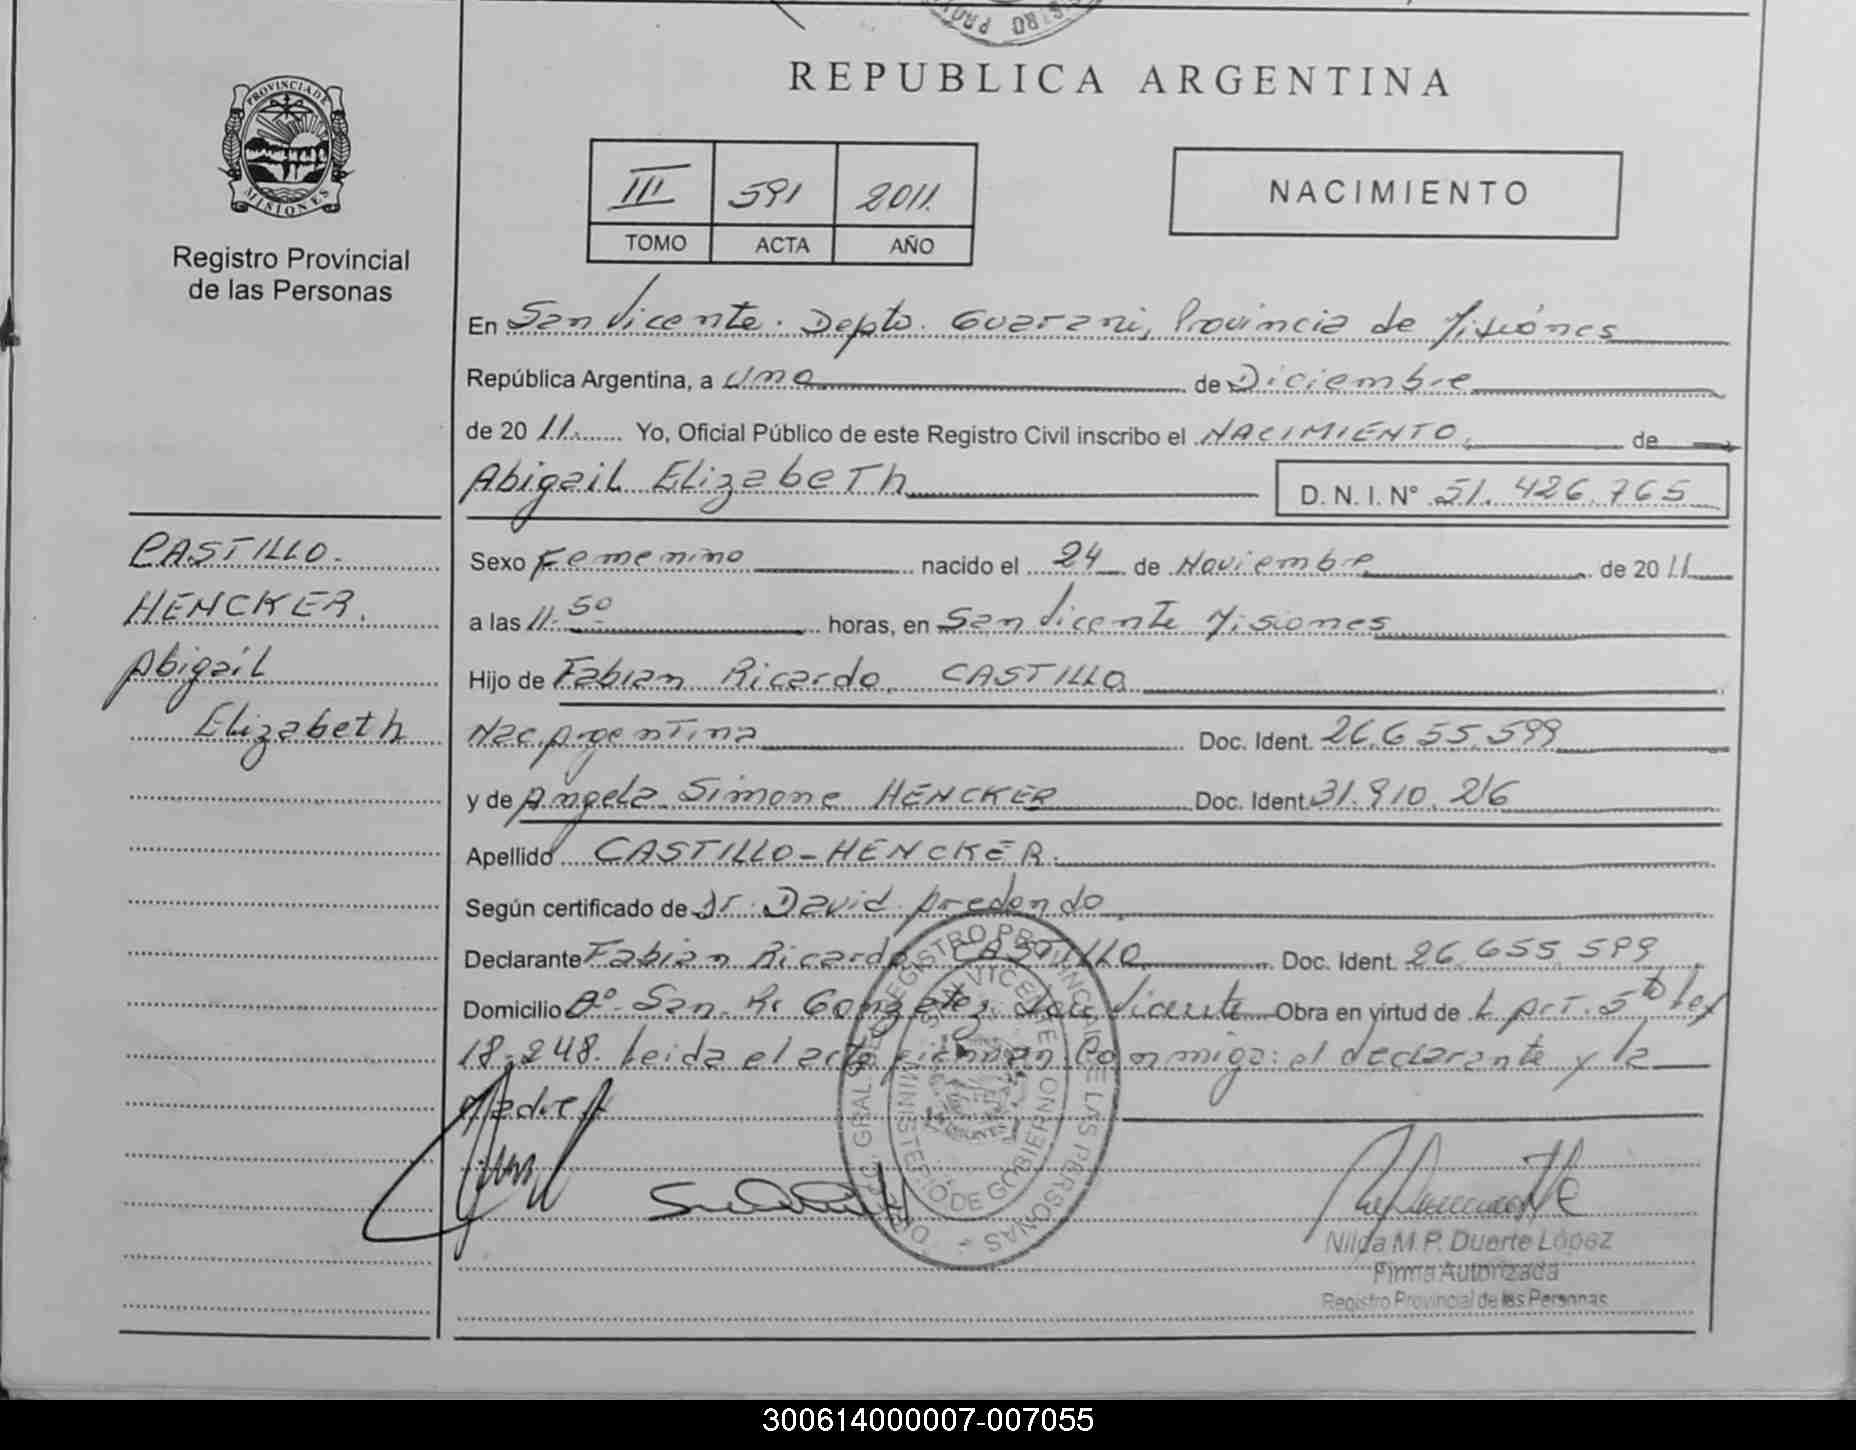 REPUBLICA ARGENTINA
PROVINCIA DE
MISIONES
Registro Provincial
de las Personas
III 591 2011.
TOMO ACTA AÑO
NACIMIENTO
En San Vicente. Depto. Guarani, Provincia de Misiónes
República Argentina, a uno de Diciembre
de 20 11. Yo, Oficial Público de este Registro Civil inscribo el NACIMIENTO, de
Abigail Elizabeth D. N. I. N° 51.426.765
CASTILLO.
HENCKER.
Abigail
Elizabeth
Sexo Femenino nacido el 24 de Noviembre de 20 11
a las 11.50 horas, en San Vicente Misiones
Hijo de Fabian Ricardo CASTILLO
Nac. Argentina Doc. Ident. 26.655.599
y de Angela Simone HENCKER Doc. Ident. 31.910.216
Apellido CASTILLO-HENCKER.
Según certificado de Dr. David Aredondo
Declarante Fabian Ricardo CASTILLO Doc. Ident. 26.655.599
Domicilio B° San R. Gonzalez, San Vicente Obra en virtud de L Art. 5to Ley
18.248. Leida el acta firman Conmigo: el declarante y la
Madre
DIRECC. GRAL. DEL REGISTRO PROVINCIAL DE LAS PERSONAS
SAN VICENTE
MINISTERIO DE GOBIERNO
Nilda M. P. Duarte López
Firma Autorizada
Registro Provincial de las Personas
300614000007-007055